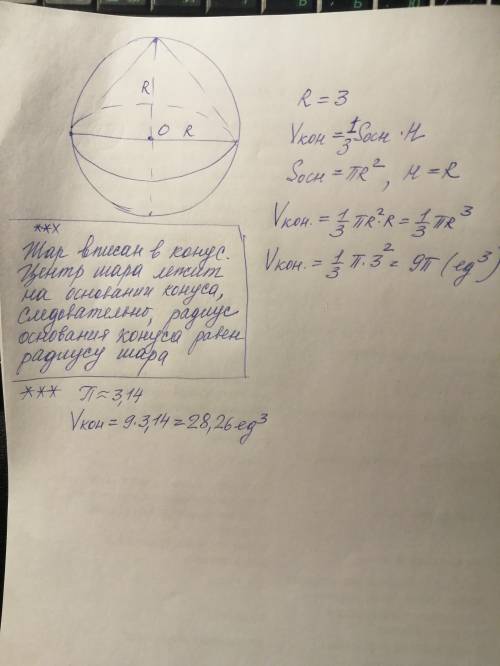 R
O R
R = 3
Vкон = 1/3 Sосн · H
Sосн = πR², H = R
Vкон. = 1/3 πR²·R = 1/3 πR³
Vкон. = 1/3 π·3² = 9π (ед³)
***
Шар вписан в конус.
Центр шара лежит
на основании конуса,
следовательно, радиус
основания конуса равен
радиусу шара
*** π ≈ 3,14
Vкон = 9·3,14 = 28,26 ед³